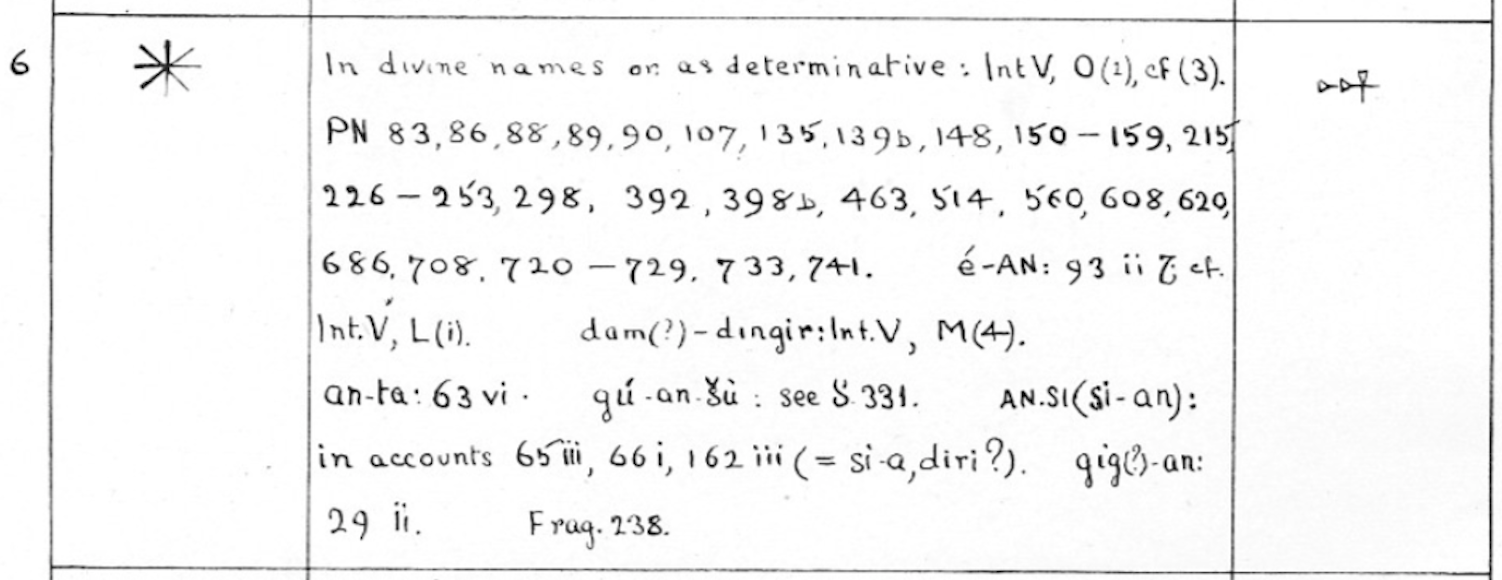 6 𒀭 In divine names or as determinative : Int V, O (1), cf (3). 𒀭
PN 83, 86, 88, 89, 90, 107, 135, 139b, 148, 150 – 159, 215,
226 – 253, 298, 392, 398b, 463, 514, 560, 608, 620,
686, 708, 720 – 729, 733, 741. é-AN: 93 ii 7; cf.
Int. V, L(i). dam(?)-dingir: Int. V, M(4).
an-ta: 63 vi. gú-an-šù : see S. 331. AN.SI(si-an):
in accounts 65 iii, 66 i, 162 iii (= si-a, diri?). gig(?)-an:
29 ii. Frag. 238.